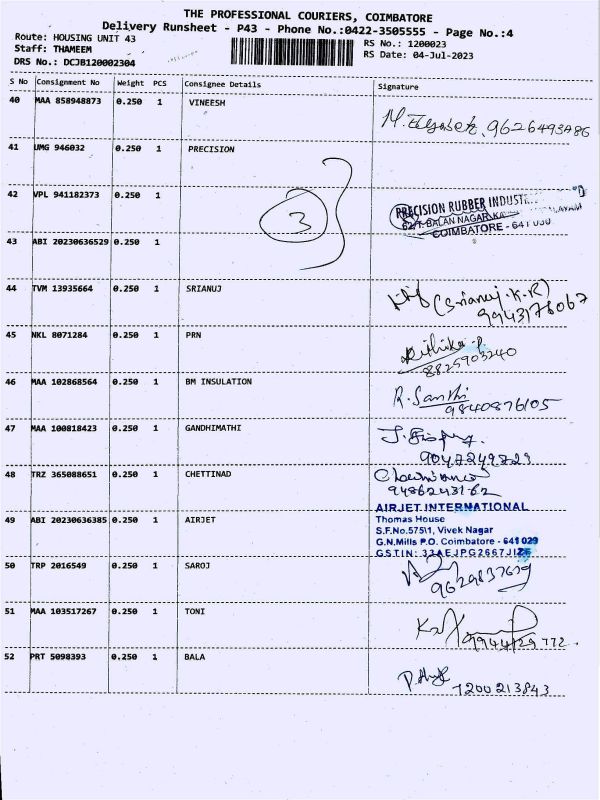 THE PROFESSIONAL COURIERS, COIMBATORE
Delivery Runsheet - P43 - Phone No.:0422-3505555 - Page No.:4
Route: HOUSING UNIT 43
RS No.: 1200023
Staff: THAMEEM
RS Date: 04-Jul-2023
DRS No.: DCJB120002304
S No Consignment No Weight PCS Consignee Details Signature
40 MAA 858948873 0.250 1 VINEESH
41 UMG 946032 0.250 1 PRECISION
42 VPL 941182373 0.250 1
3
PRECISION RUBBER INDUST
BALAN NAGAR
COIMBATORE - 641
43 ABI 20230636529 0.250 1
44 TVM 13935664 0.250 1 SRIANUJ (Srianuj.K.R)
9943178067
45 NKL 8071284 0.250 1 PRN
8825903240
46 MAA 102868564 0.250 1 BM INSULATION R. Santhi
9840876105
47 MAA 100818423 0.250 1 GANDHIMATHI
9047249829
48 TRZ 365088651 0.250 1 CHETTINAD
9486243162
49 ABI 20230636385 0.250 1 AIRJET
AIRJET INTERNATIONAL
Thomas House
S.F.No.575\1, Vivek Nagar
G.N.Mills P.O. Coimbatore - 641 029
GSTIN: 33AEJPG2667J1Z6
50 TRP 2016549 0.250 1 SAROJ
51 MAA 103517267 0.250 1 TONI
52 PRT 5098393 0.250 1 BALA
7200213843